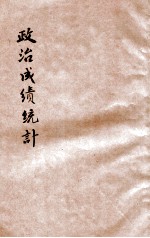 政治成绩統計